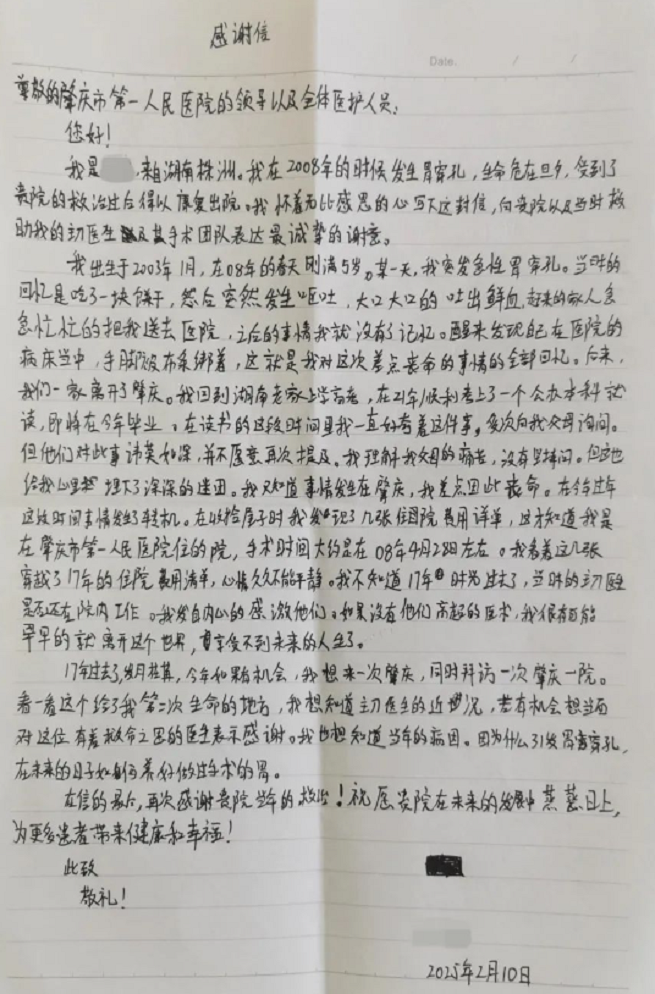 感谢信
Date.
尊敬的肇庆市第一人民医院的领导以及全体医护人员:
您好!
我是 ,来自湖南株洲。我在2008年的时候发生胃穿孔,生命危在旦夕,受到了
贵院的救治过后得以康复出院。我怀着无比感恩的心写下这封信,向贵院以及当时救
助我的主刀医生及其手术团队表达最诚挚的谢意。
我出生于2003年1月,在08年的春天刚满5岁,某一天,我突发急性胃穿孔。当时的
回忆是吃了一块饼干,然后突然发生呕吐,大口大口的吐出鲜血,赶来的家人急
急忙忙的把我送去医院,之后的事情我就没有了记忆。醒来发现自己在医院的
病床当中,手脚被布条绑着,这就是我对这次差点丧命的事情的全部回忆。后来,
我们一家离开了肇庆。我回到湖南老家上学高考,在21年顺利考上了一个公办本科就
读,即将在今年毕业,在读书的这段时间里我一直好奇着这件事,多次向我父母询问。
但他们对此事讳莫如深,并不愿意再次提及。我理解我父母的痛苦,没有里提问。但这也
给我心里埋下了深深的迷团。我只知道事情发生在肇庆,我差点因此丧命。在今年过年
这段时间事情发生了转机。在收捡屋子时我发现了几张住院费用详单,这才知道我是
在肇庆市第一人民医院住的院,手术时间大约是在08年4月28日左右。我看着这几张
穿越了17年的住院费用清单,心情久久不能平静。我不知道17年时光过去了,当时的主刀医生
是否还在院内工作。我发自内心的感激他们。如果没有他们高超的医术,我很有可能
早早的就离开这个世界,享受不到未来的人生了。
17年过去了,岁月荏苒,今年如果有机会,我想来一次肇庆,同时拜访一次肇庆一院。
看一看这个给了我第二次生命的地方,我想知道主刀医生的近况,若有机会想当面
对这位有着救命之恩的医生表示感谢。我也想知道当年的病因。因为什么引发胃穿孔,
在未来的日子如何养好做过手术的胃。
在信的最后,再次感谢贵院当年的救治!祝愿贵院在未来的发展中蒸蒸日上,
为更多患者带来健康和幸福!
此致
敬礼!
2025年2月10日